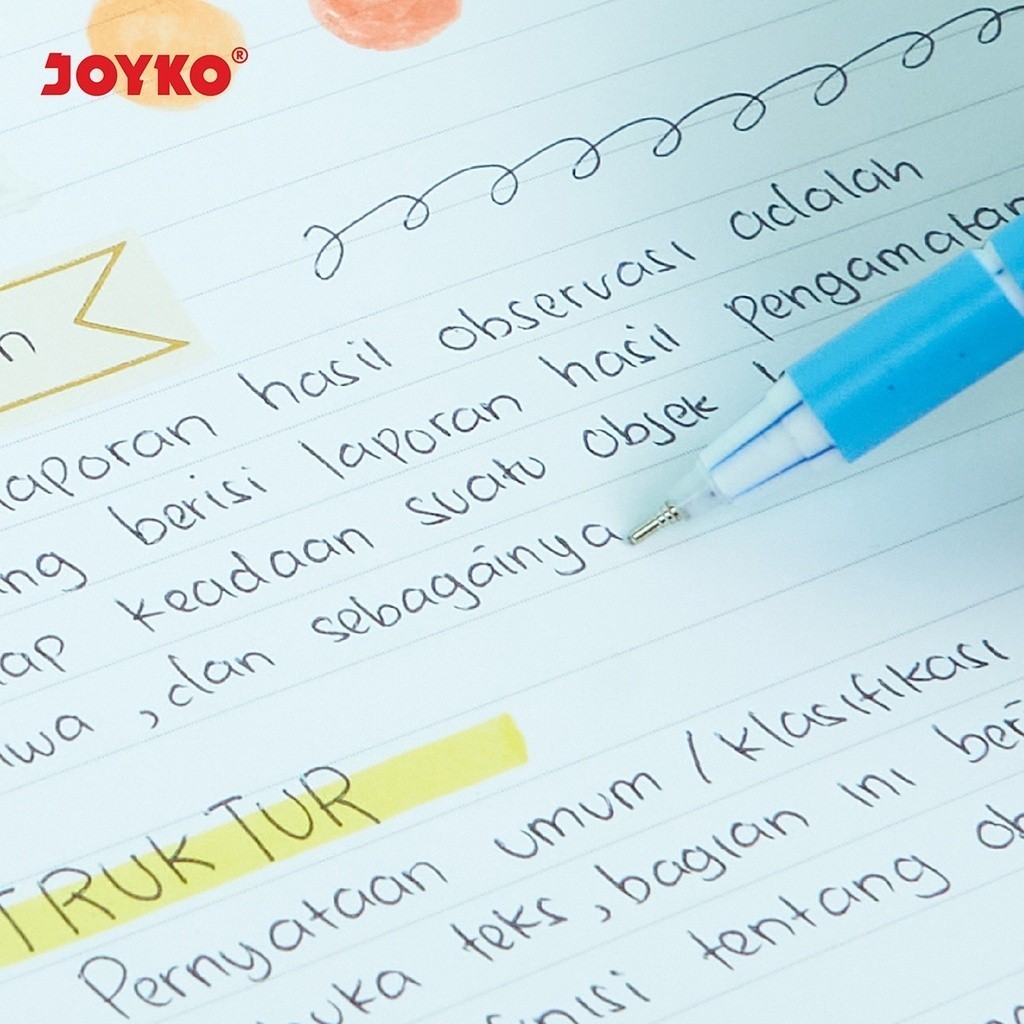 JOYKO®
n
laporan hasil observasi adalah
ng berisi laporan hasil pengamatan
ap keadaan suatu objek
iwa , dan sebagainya
TRUKTUR
Pernyataan umum / klasifikasi
buka teks, bagian ini beri
inisi tentang ob